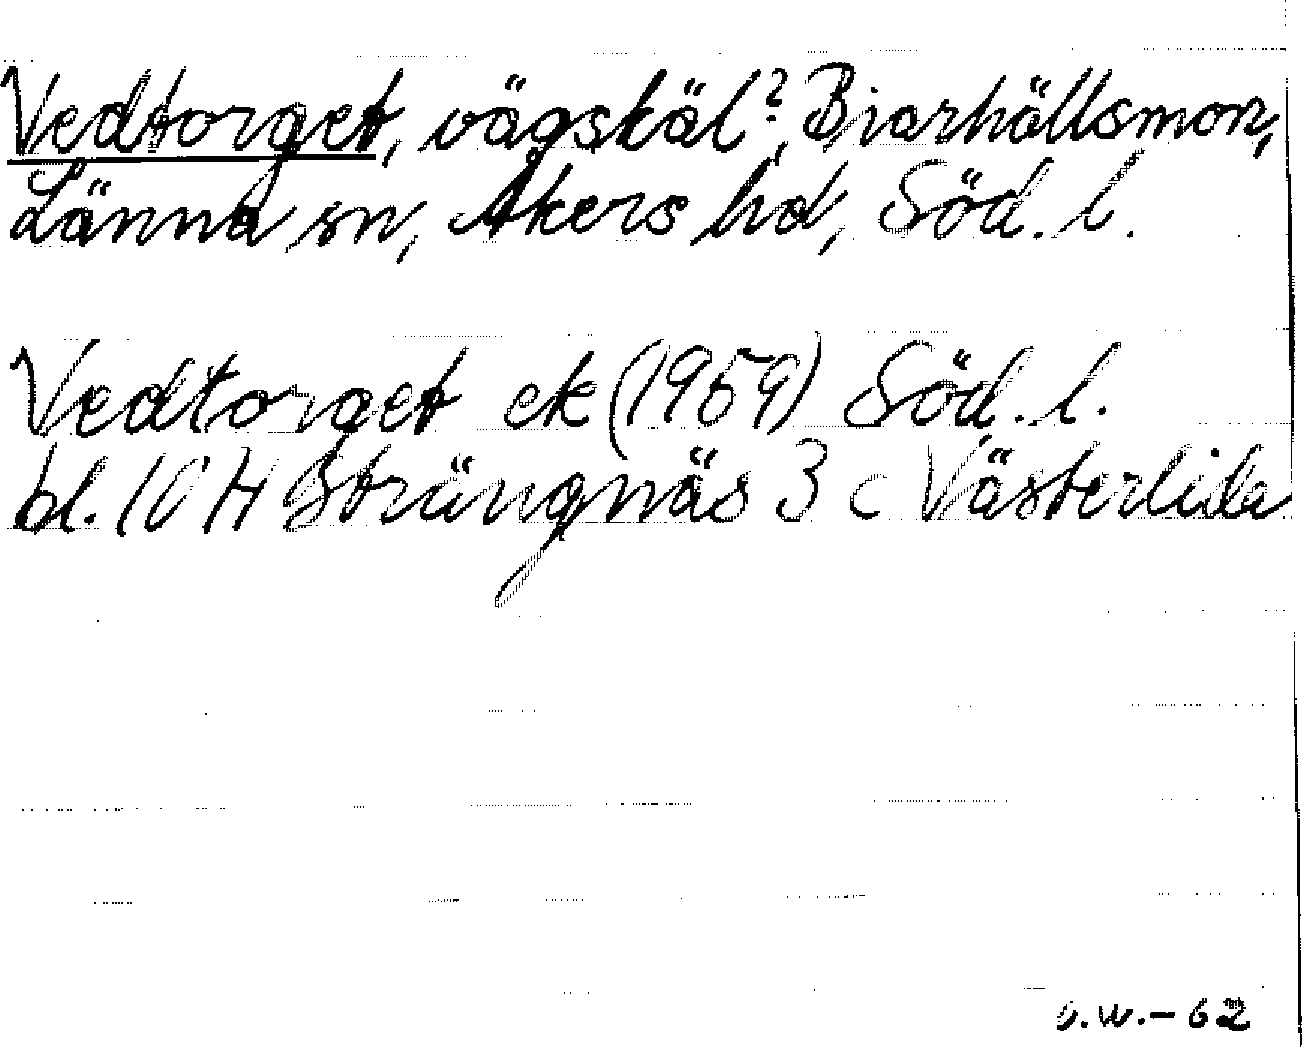 Vedtorget, vägskäl?, Bjarhällsmon,
Länna sn, Åkers hd, Söd. l.
Vedtorget ek (1959) Söd. l.
bl. 10 H Strängnäs 3 c Västerlida
-62